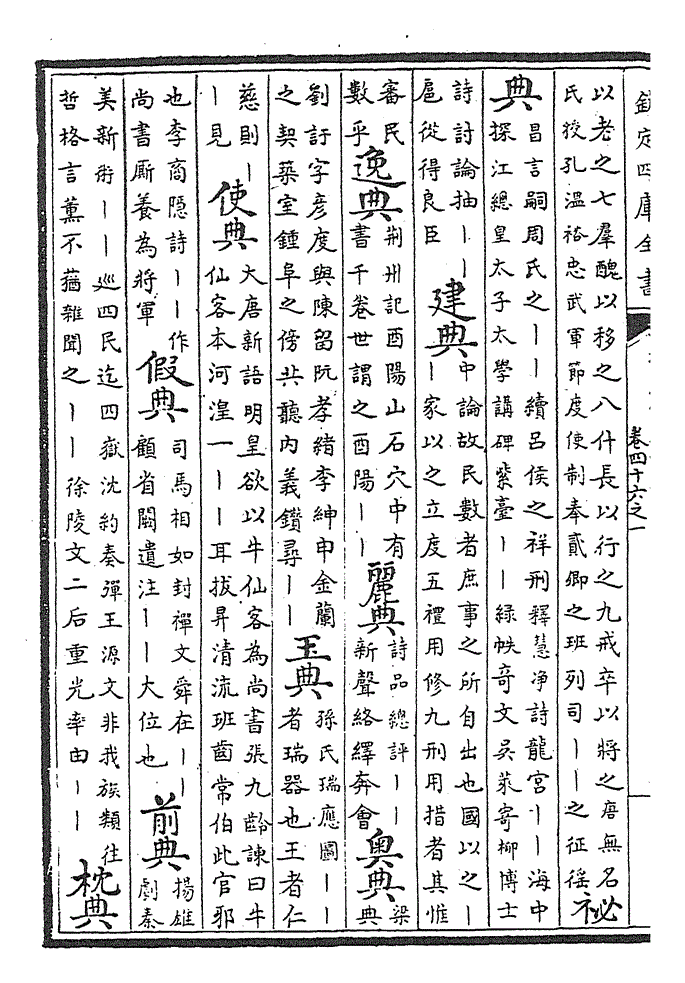 欽定四庫全書
卷四十六之一
以老之七羣醜以移之八什長以行之九戒卒以將之唐無名
氏授孔溫裕忠武軍節度使制奉貳卿之班列司丨丨之征徭
祕典
昌言嗣周氏之丨丨續呂侯之祥刑釋慧淨詩龍宮丨丨海中
探江總皇太子太學講碑紫臺丨丨綠帙奇文吳萊寄柳博士
詩討論抽丨丨
扈從得良臣
建典
中論故民數者庶事之所自出也國以之丨
丨家以之立度五禮用修九刑用措者其惟
審民
數乎
逸典
荆州記酉陽山石穴中有
書千卷世謂之酉陽丨丨
麗典
詩品總評丨丨
新聲絡繹奔會
奧典
梁
典
劉訏字彦度與陳留阮孝緒李紳申金蘭
之契築室鍾阜之傍共聽内義鑽尋丨丨
玉典
孫氏瑞應圖丨丨
者瑞器也王者仁
慈則丨
丨見
使典
大唐新語明皇欲以牛仙客為尚書張九齡諫曰牛
仙客本河湟一丨丨耳拔昇清流班齒常伯此官邪
也李商隱詩丨丨作
尚書厮養為將軍
假典
司馬相如封禪文舜在丨丨
顧省闕遺注丨丨大位也
前典
揚雄
劇秦
美新術丨丨巡四民迄四嶽沈約奏彈王源文非我族類往
哲格言薰不蕕雜聞之丨丨徐陵文二后重光率由丨丨
枕典